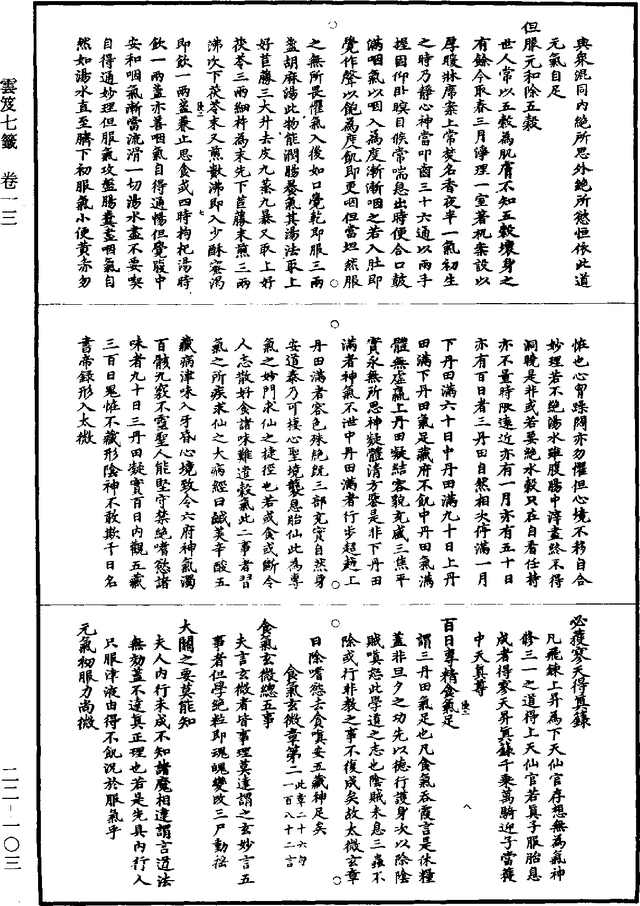 與衆混同內絶所思外絶所慾恒依此道
元氣自足
但服元和除五穀
世人常以五穀為肌膚不知五穀壞身之
有餘今取春三月淨理一室著机案設以
厚服牀席案上常焚名香夜半一氣初生
之時乃靜心神當叩齒三十六通以兩手
握固仰卧瞑目候常喘息出時便合口皷
滿咽氣以咽入為度漸漸咽之若入肚即
覺作聲以飽為度飢即更咽但當坦然服
之無所畏懼氣入後如口覺乾即服三兩
盞胡麻湯此物能潤腸養氣其湯法取上
好苣藤三大升去皮九蒸九暴又取上好
茯苓三兩細杵為末先下苣藤末煎三兩
沸次下茯苓末又煎數沸即入少酥蜜渴
即飲一兩盞兼止思食或四時枸杞湯時
飲一兩盞亦善咽氣自得通暢但覺腹中
安和咽氣漸當流滑一切湯水盡不要喫
自得通妙理但服氣攻盤腸糞盡咽氣自
然如湯水直至臍下初服氣小便黃赤勿
恠也心胷躁悶亦勿懼但心境不移自合
妙理若不絶湯水雖腹腸中滓盡終不得
洞曉是非或若要絶水穀只在自看任持
亦不量時限遠近亦有一月亦有五十日
亦有百日者三丹田自然相次停滿一月
下丹田滿六十日中丹田滿九十日上丹
田滿下丹田氣足藏府不飢中丹田氣滿
體無虛羸上丹田凝結容貌充盛三焦平
實永無所思神凝體清方鑒是非下丹田
滿者神氣不泄中丹田滿者行步超越上
丹田滿者容色殊絶既三部充實自然身
安道泰乃可棲心聖境襲息胎仙此為專
氣之妙門求仙之捷徑也若或食或斷令
人志散好食諸味難遣穀氣此二事者習
氣之所疾求仙之大病經曰鹹美辛酸五
藏病津味入牙昏心境致令六府神氣濁
百骸九竅不靈聖人能堅守禁絶嗜慾諸
味者九十日三丹田凝實百日內觀五藏
三百日鬼恠不藏形陰神不敢欺千日名
書帝錄形入太微
必獲寥天得真籙
凡飛鍊上昇為下天仙官存想無為氣神
修三一之道得上天仙官若真子服胎息
成者得寥天昇真籙千乘萬騎迎子當獲
中天真尊
百日專精食氣足
謂三丹田氣足也凡食氣吞霞言是休糧
蓋非旦夕之功先以德行護身次以除陰
賊嗔怒此學道之志也陰賊未息三蟲不
除或行非教之事不復成矣故太微玄章
曰除嗜慾去食嗔妄五藏神足矣
食氣玄微章第二 此章二十六句一百八十二言
食氣玄微總五事
夫言玄微者皆事理莫達謂之玄妙言五
事者但學絶粒即魂魄變改三尸動搖
大闗之要莫能知
夫人內行未成不知諸魔相違謂言道法
無効蓋不達真正理也若是先具內行人
只服津液由得不飢況於服氣乎
元氣初服力尚微
雲笈七籤 卷一三
二二－一〇三